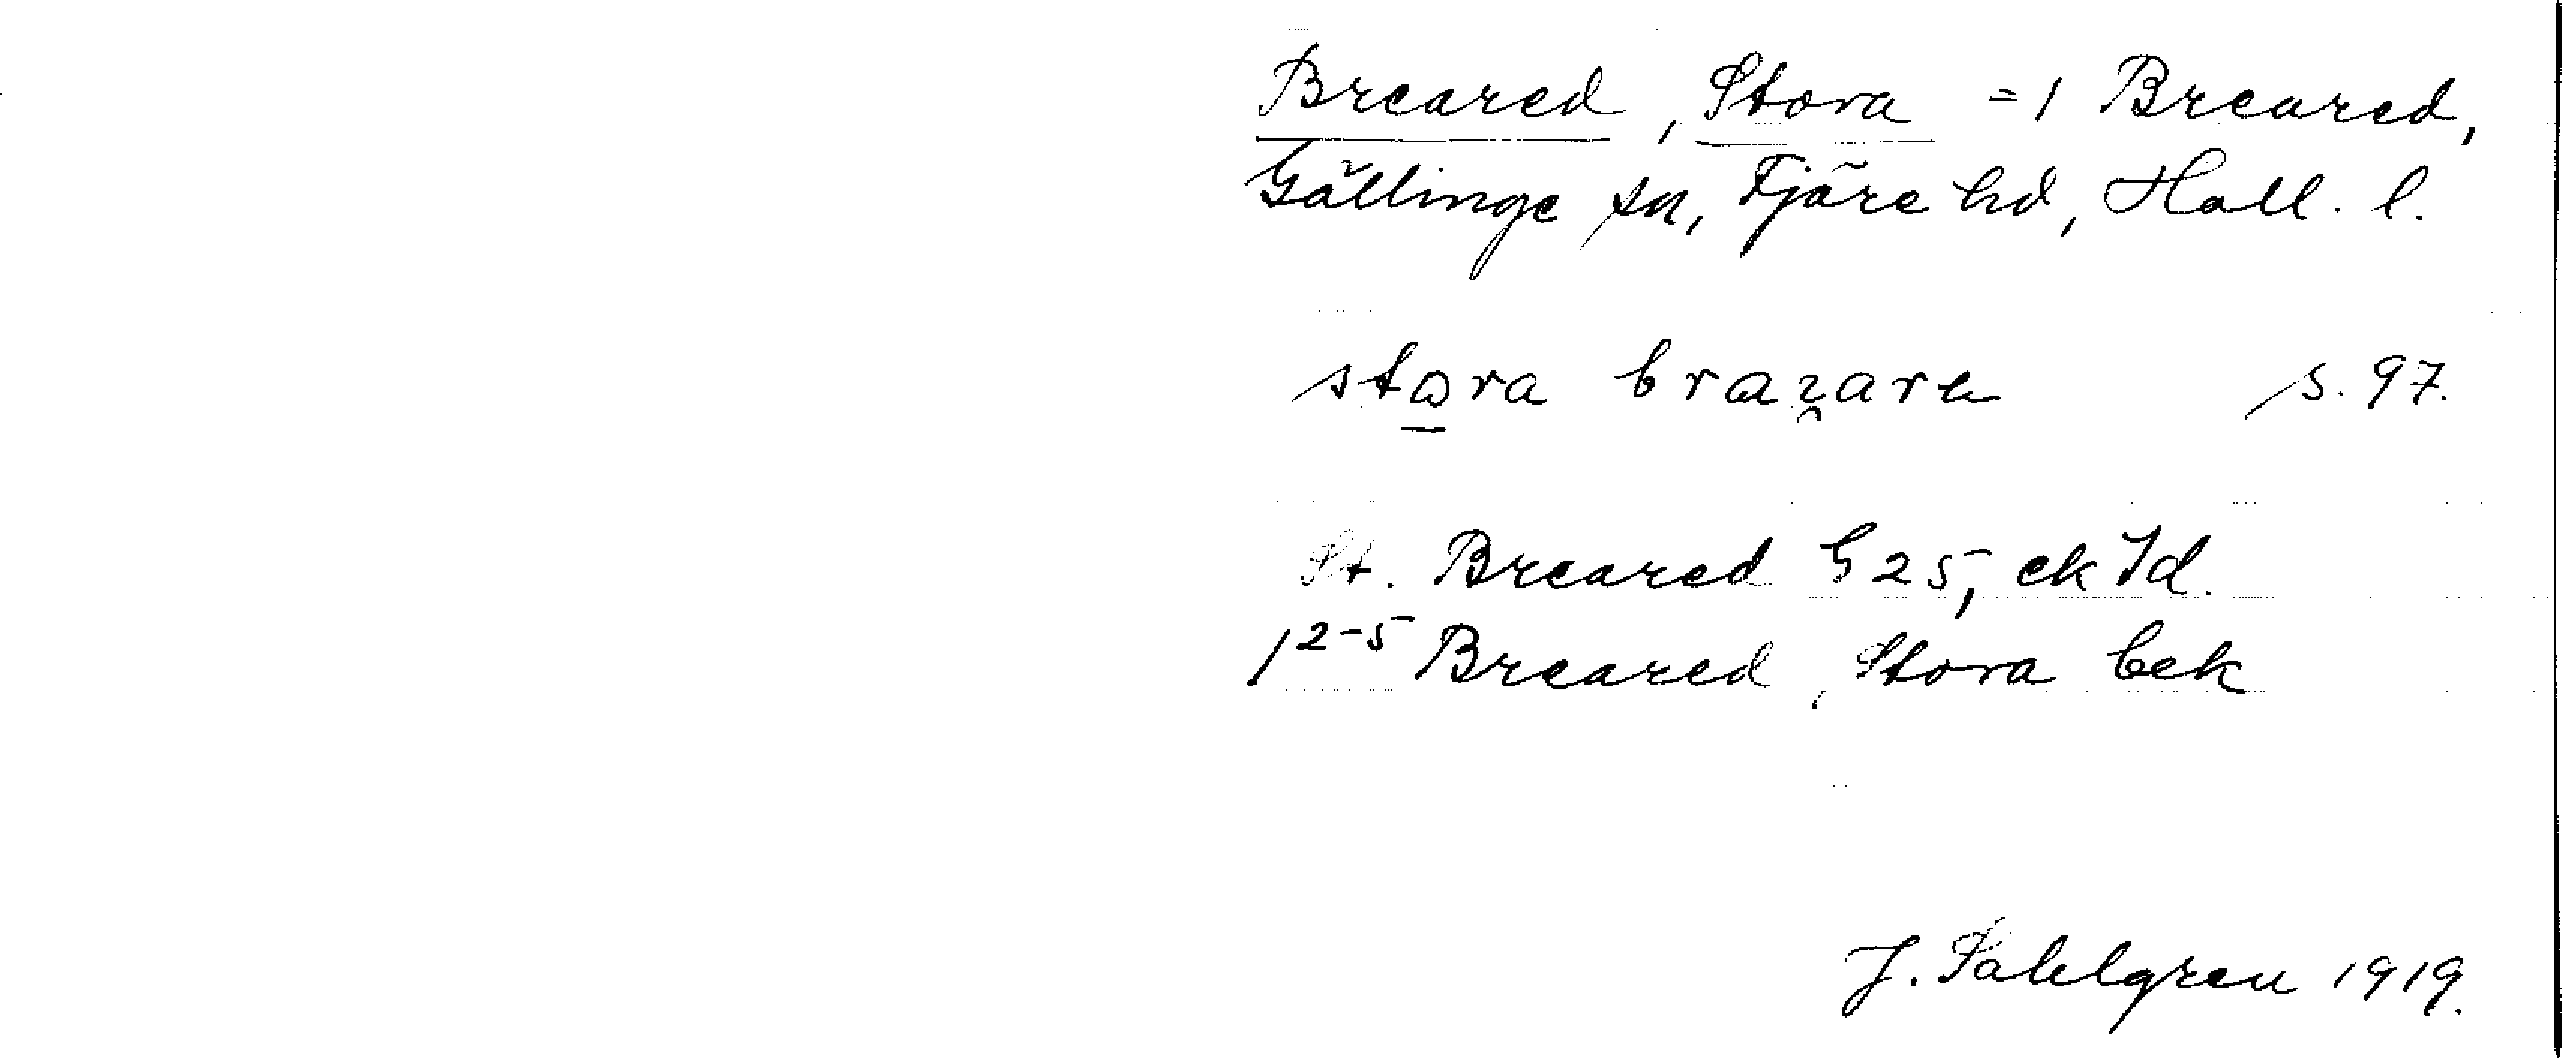 Breared, Stora = 1 Breared,
Gällinge sn, Fjäre hd, Hall. l.
stora s. 97.
St. Breared G 25, ek Jd.
1 2-5 Breared, Stora bek
J. Sahlgren 1919.